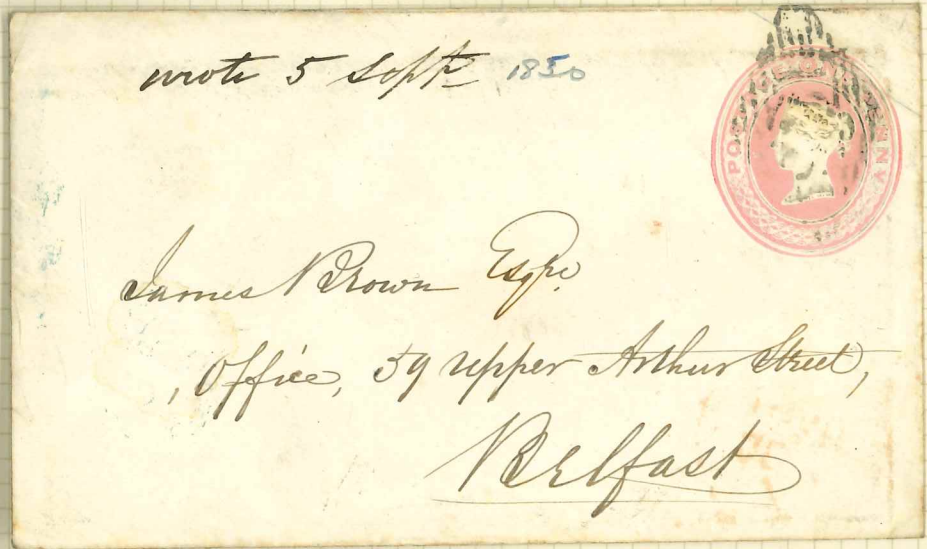 wrote 5 Sept 1850
POSTAGE ONE PENNY
James Brown Esqre
Office, 59 Upper Arthur Street,
Belfast